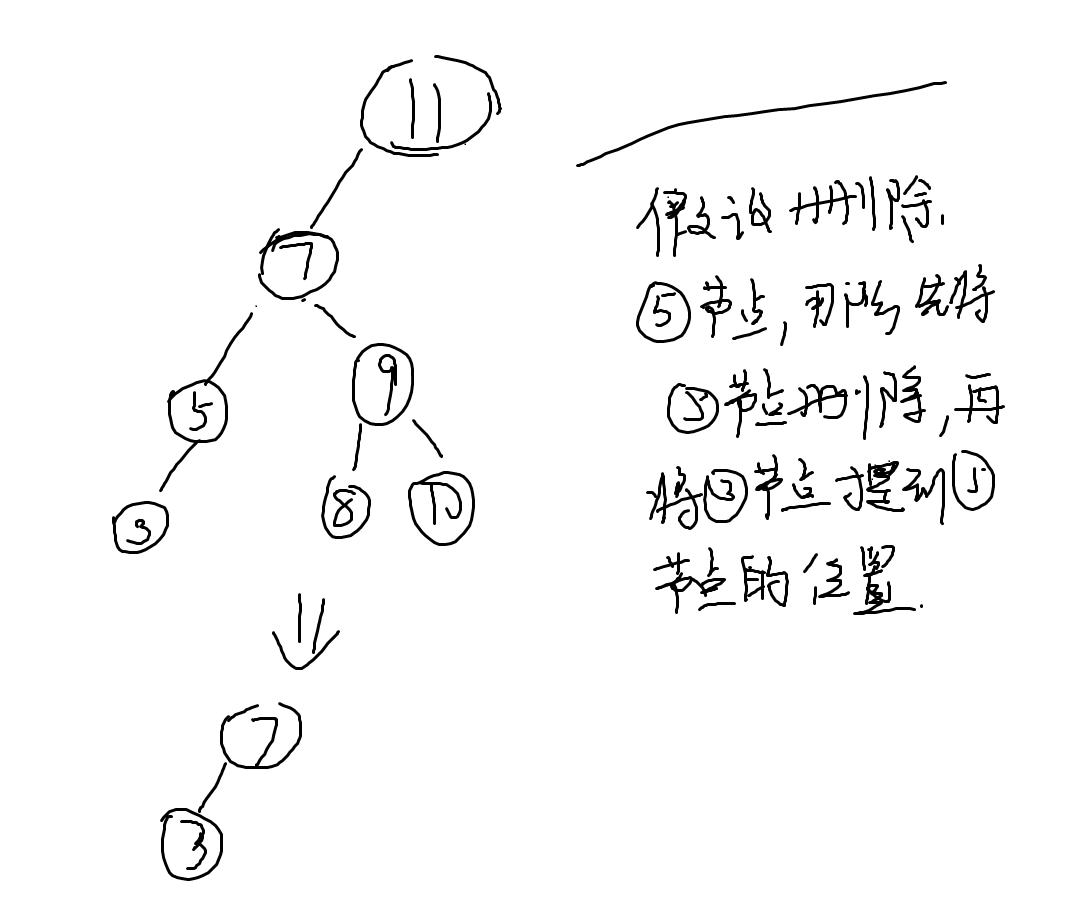 11
7
5
9
3
8
10
7
3
假设删除.
⑤节点,那么先将
⑤节点删除,再
将③节点提到⑤
节点的位置.